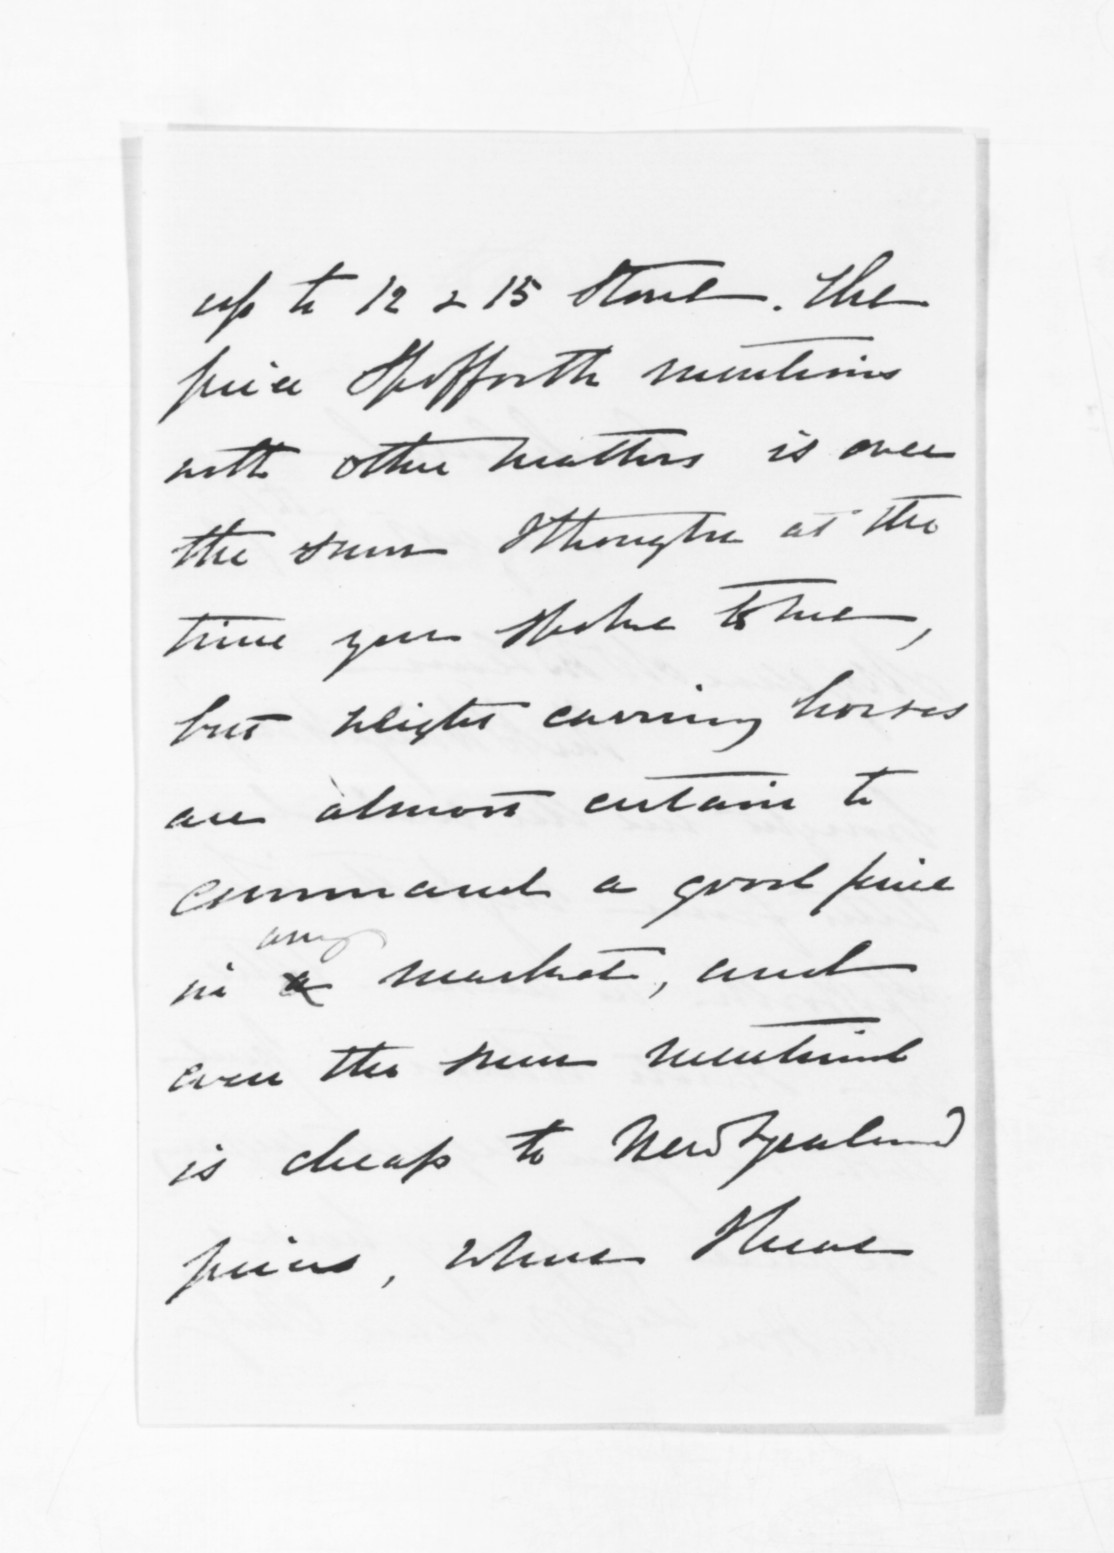 up to 12 & 15 Stone. The
price Spofforth mentions
with other matters is over
the sum I thought at the
time you spoke to me,
but weight carrying horses
are almost certain to
command a good price
in any a market, and
even the sum mentioned
is cheap to New Zealand
prices, where I hear